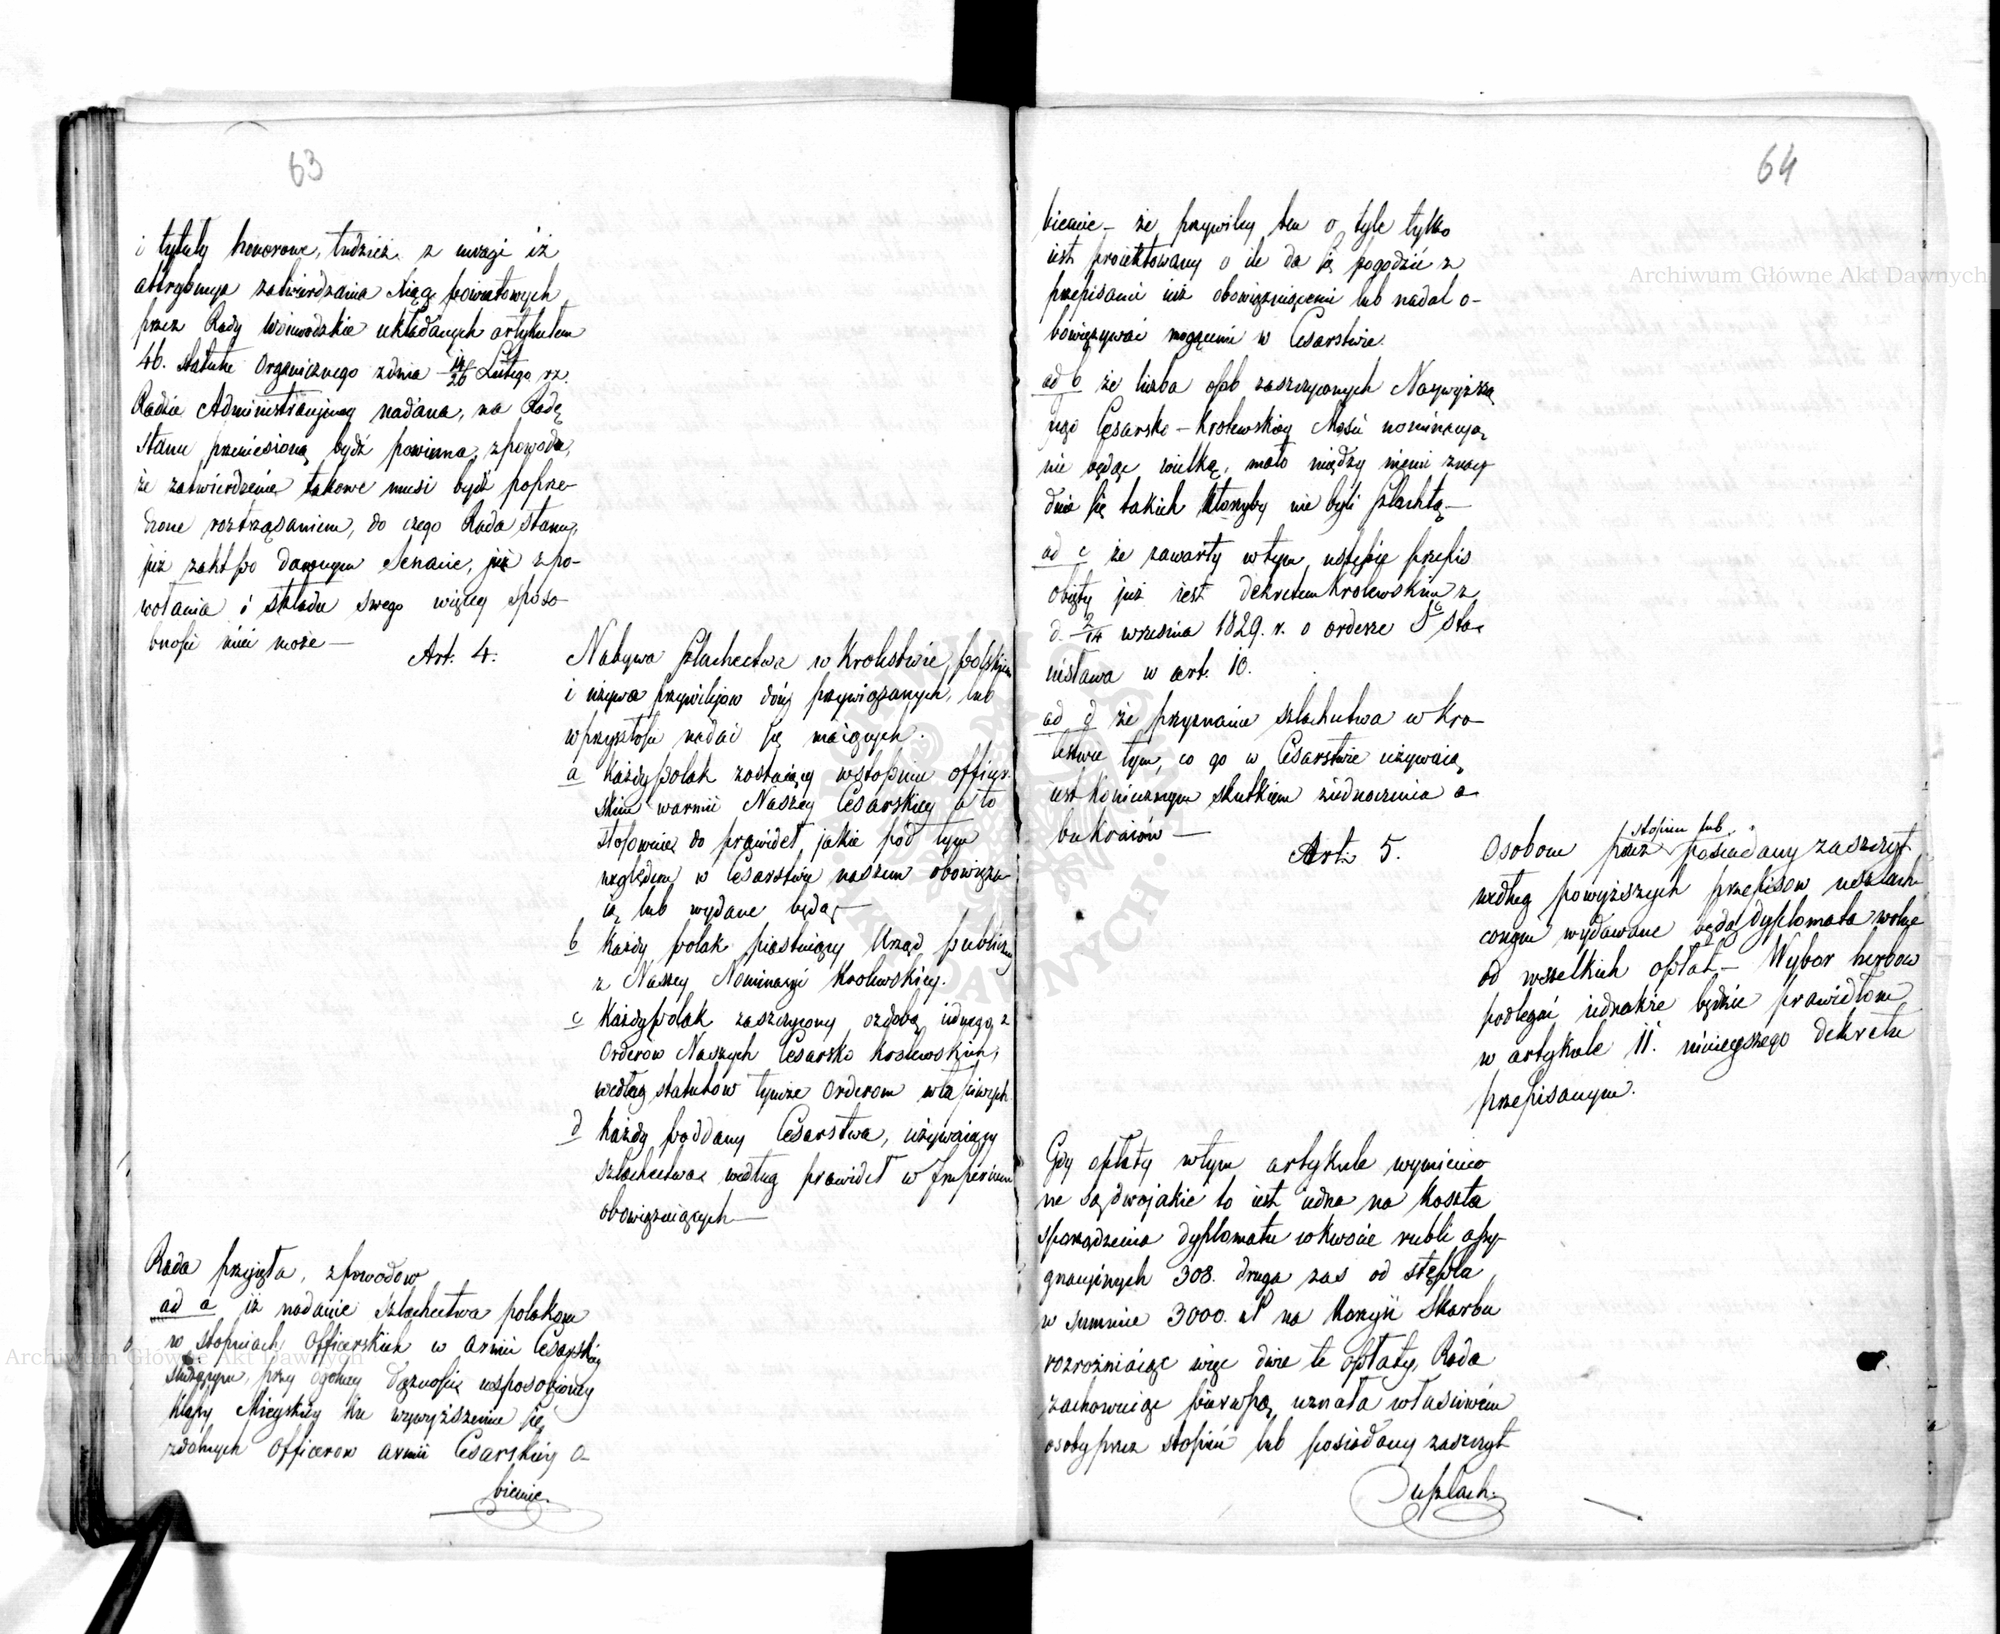 63
i tytuły honorowe, tudzież z uwagi iż
attrybucya zatwierdzania Xiąg powiatowych
przez Rady Woiewodzkie układanych artykułem
46. statutu Organicznego z dnia 14/26 Lutego rz.
Radzie Administracyiney nadana, na Radę
stanu przeniesioną bydź powinna, z powodu,
że zatwierdzenie takowe musi bydź poprze-
dzone roztrząsaniem, do czego Rada stanu,
już zaktpo dawnym Senacie, już z po-
wołania i składu swego więcey sposo-
bności mieć może —
Art. 4.
Nabywa szlachectwa w Krolestwie polskiem
i używa przywilejow doń przywiązanych, lub
w przyszłości nadać się maiących.
a każdy polak zostaiący w stopniu officer-
skim w armii Naszey Cesarskiey a to
stosownie do prawideł, jakie pod tym
względem w Cesarstwie naszem obowiązu-
ią lub wydane będą —
b każdy polak piastuiący Urząd publiczny
z Naszey Nominacyi Krolewskiey.
c każdy polak zaszczycony ozdobą iednego z
Orderów Naszych Cesarsko Krolewskich,
według statutów tymże Orderom właściwych
d każdy poddany Cesarstwa, używaiący
szlachectwa według prawideł w Imperium
obowiązuiących —
Rada przyięta, z powodow
ad a iż nadanie szlachectwa polakom
w stopniach officerskich w armii Cesarskiey
służącym, przy ogolney dążności usposobioney
klassy Mieyskiey ku wywyższeniu się
zdolnych officerow armii Cesarskiey o-
biecuie.
64
biecuie — że przywiley ten o tyle tylko
iest proiektowany o ile da się pogodzić z
przepisami iuż obowiązuiącemi lub nadal o-
bowiązywać mogącemi w Cesarstwie.
ad b że liczba osób zaszczyconych Naywyższą
Jego Cesarsko-Krolewskiey Mości nominacyą
nie będąc wielką, mało między niemi znay-
dzie się takich któryby nie byli szlachtą —
ad c że zawarty w tym ustępie przepis
obięty już iest dekretem Krolewskim z
d. 2/14 września 1829. r. o orderze Sgo Sta-
nisława w art. 10.
ad d że przyznanie szlachectwa w Kro-
lestwie tym, co go w Cesarstwie używaią
iest koniecznym skutkiem ziednoczenia o-
bu kraiów —
Art. 5.
Osobom przez stopien lub posiadany zaszczyt
według powyższych przepisow uszlach-
conym wydawane będą dyplomata wolne
od wszelkich opłat — Wybor herbow
podlegać iednakże będzie prawidłom
w artykule 11. ninieyszego dekretu
przepisanym.
Gdy opłaty w tym artykule wymienio-
ne są dwojakie to iest iedna na koszta
sporządzenia dyplomatu w kwocie rubli assy-
gnacyinych 308. druga zas od stępla
w summie 3000. zł na korzyść Skarbu
rozrożniaiąc więc dwie te opłaty, Rada
zachowuiąc pierwszą uznała właściwém
osoby przez stopień lub posiadany zaszczyt
uszlach.
Archiwum Główne Akt Dawnych
Archiwum Główne Akt Dawnych